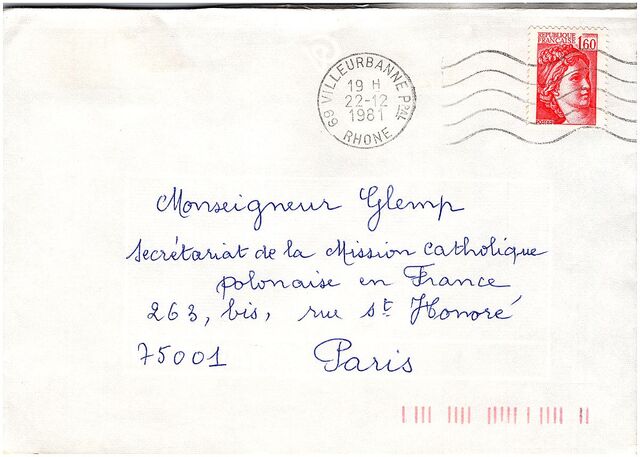 REPUBLIQUE
FRANCAISE 1,60
69 VILLEURBANNE PPAL
19 H
22-12
1981
RHONE
Monseigneur Glemp
Secrétariat de la Mission Catholique
polonaise en France
263, bis, rue St Honoré
75001 Paris